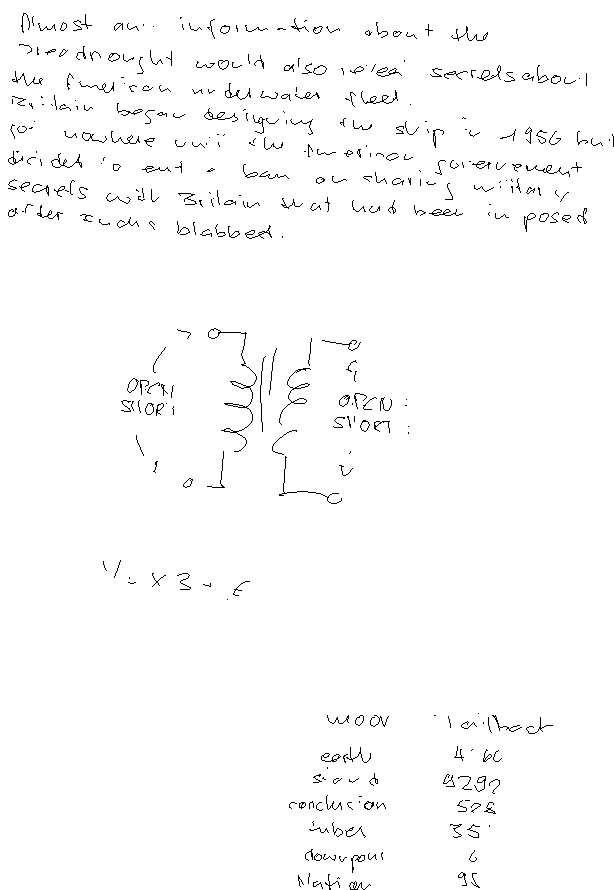 Almost any information about the
Dreadnought would also reveal secrets about
the American underwater fleet.
Britain began designing the ship in 1956 but
got nowhere until the American government
decided to end a ban on sharing military
secrets with Britain that had been imposed
after Fuchs blabbed.
OPEN OPEN
SHORT SHORT
moor
earth
9292
conclusion 528
35
downpour 6
Nation 95